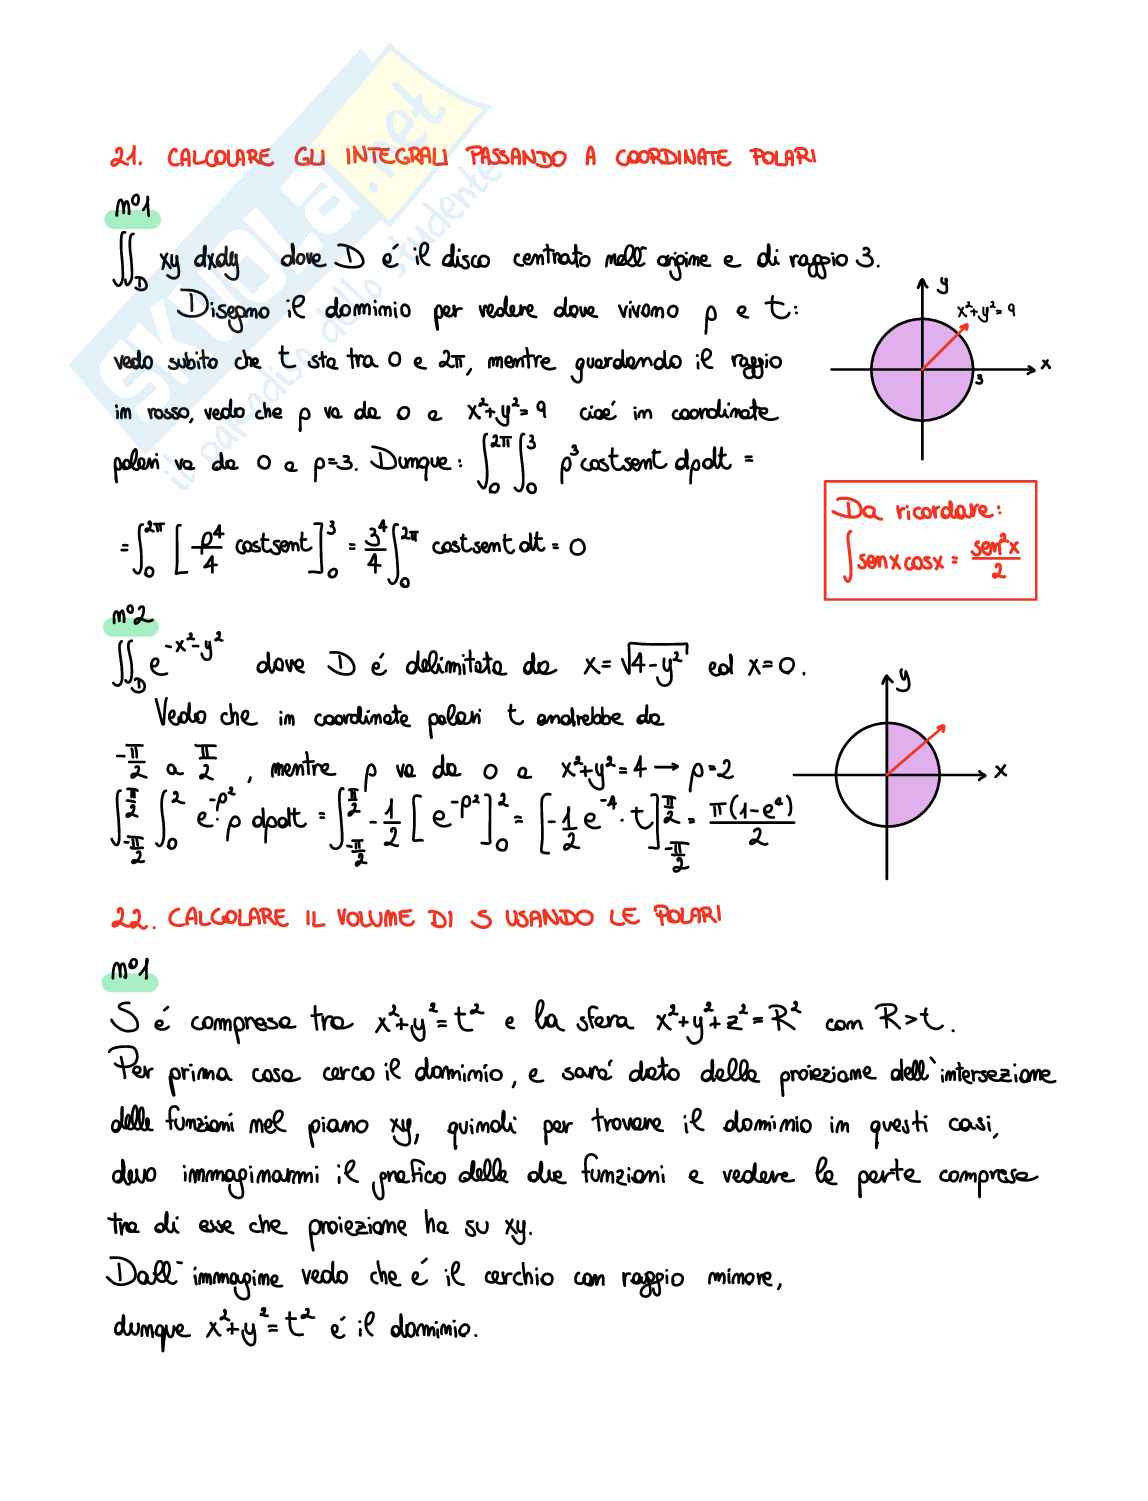 21. CALCOLARE GLI INTEGRALI PASSANDO A COORDINATE POLARI
n°1
∬_D xy dxdy dove D é il disco centrato nell'origine e di raggio 3.
Disegno il dominio per vedere dove vivono ρ e t:
vedo subito che t sta tra 0 e 2π, mentre guardando il raggio
in rosso, vedo che ρ va da 0 a x²+y²=9 cioé in coordinate
polari va da 0 a ρ=3. Dunque: ∫_0^2π ∫_0^3 ρ³ cost sent dρdt =
= ∫_0^2π [ρ⁴/4 cost sent]_0^3 = 3⁴/4 ∫_0^2π cost sent dt = 0
y
x²+y²=9
x
3
Da ricordare:
∫ senx cosx = sen²x/2
n°2
∬_D e^(-x²-y²) dove D é delimitata da x=√(4-y²) ed x=0.
Vedo che in coordinate polari t andrebbe da
-π/2 a π/2, mentre ρ va da 0 a x²+y²=4 → ρ=2
∫_(-π/2)^(π/2) ∫_0^2 e^(-ρ²)·ρ dρdt = ∫_(-π/2)^(π/2) -1/2 [e^(-ρ²)]_0^2 = [-1/2 e^(-4)·t]_(-π/2)^(π/2) = π(1-e⁴)/2
y
x
22. CALCOLARE IL VOLUME DI S USANDO LE POLARI
n°1
S é compresa tra x²+y²=t² e la sfera x²+y²+z²=R² con R>t.
Per prima cosa cerco il dominio, e sará dato dalla proiezione dell'intersezione
delle funzioni nel piano xy, quindi per trovare il dominio in questi casi,
devo immaginarmi il grafico delle due funzioni e vedere la parte compresa
tra di esse che proiezione ha su xy.
Dall'immagine vedo che é il cerchio con raggio minore,
dunque x²+y²=t² é il dominio.
SKUOLA.net
il paradiso dello studente